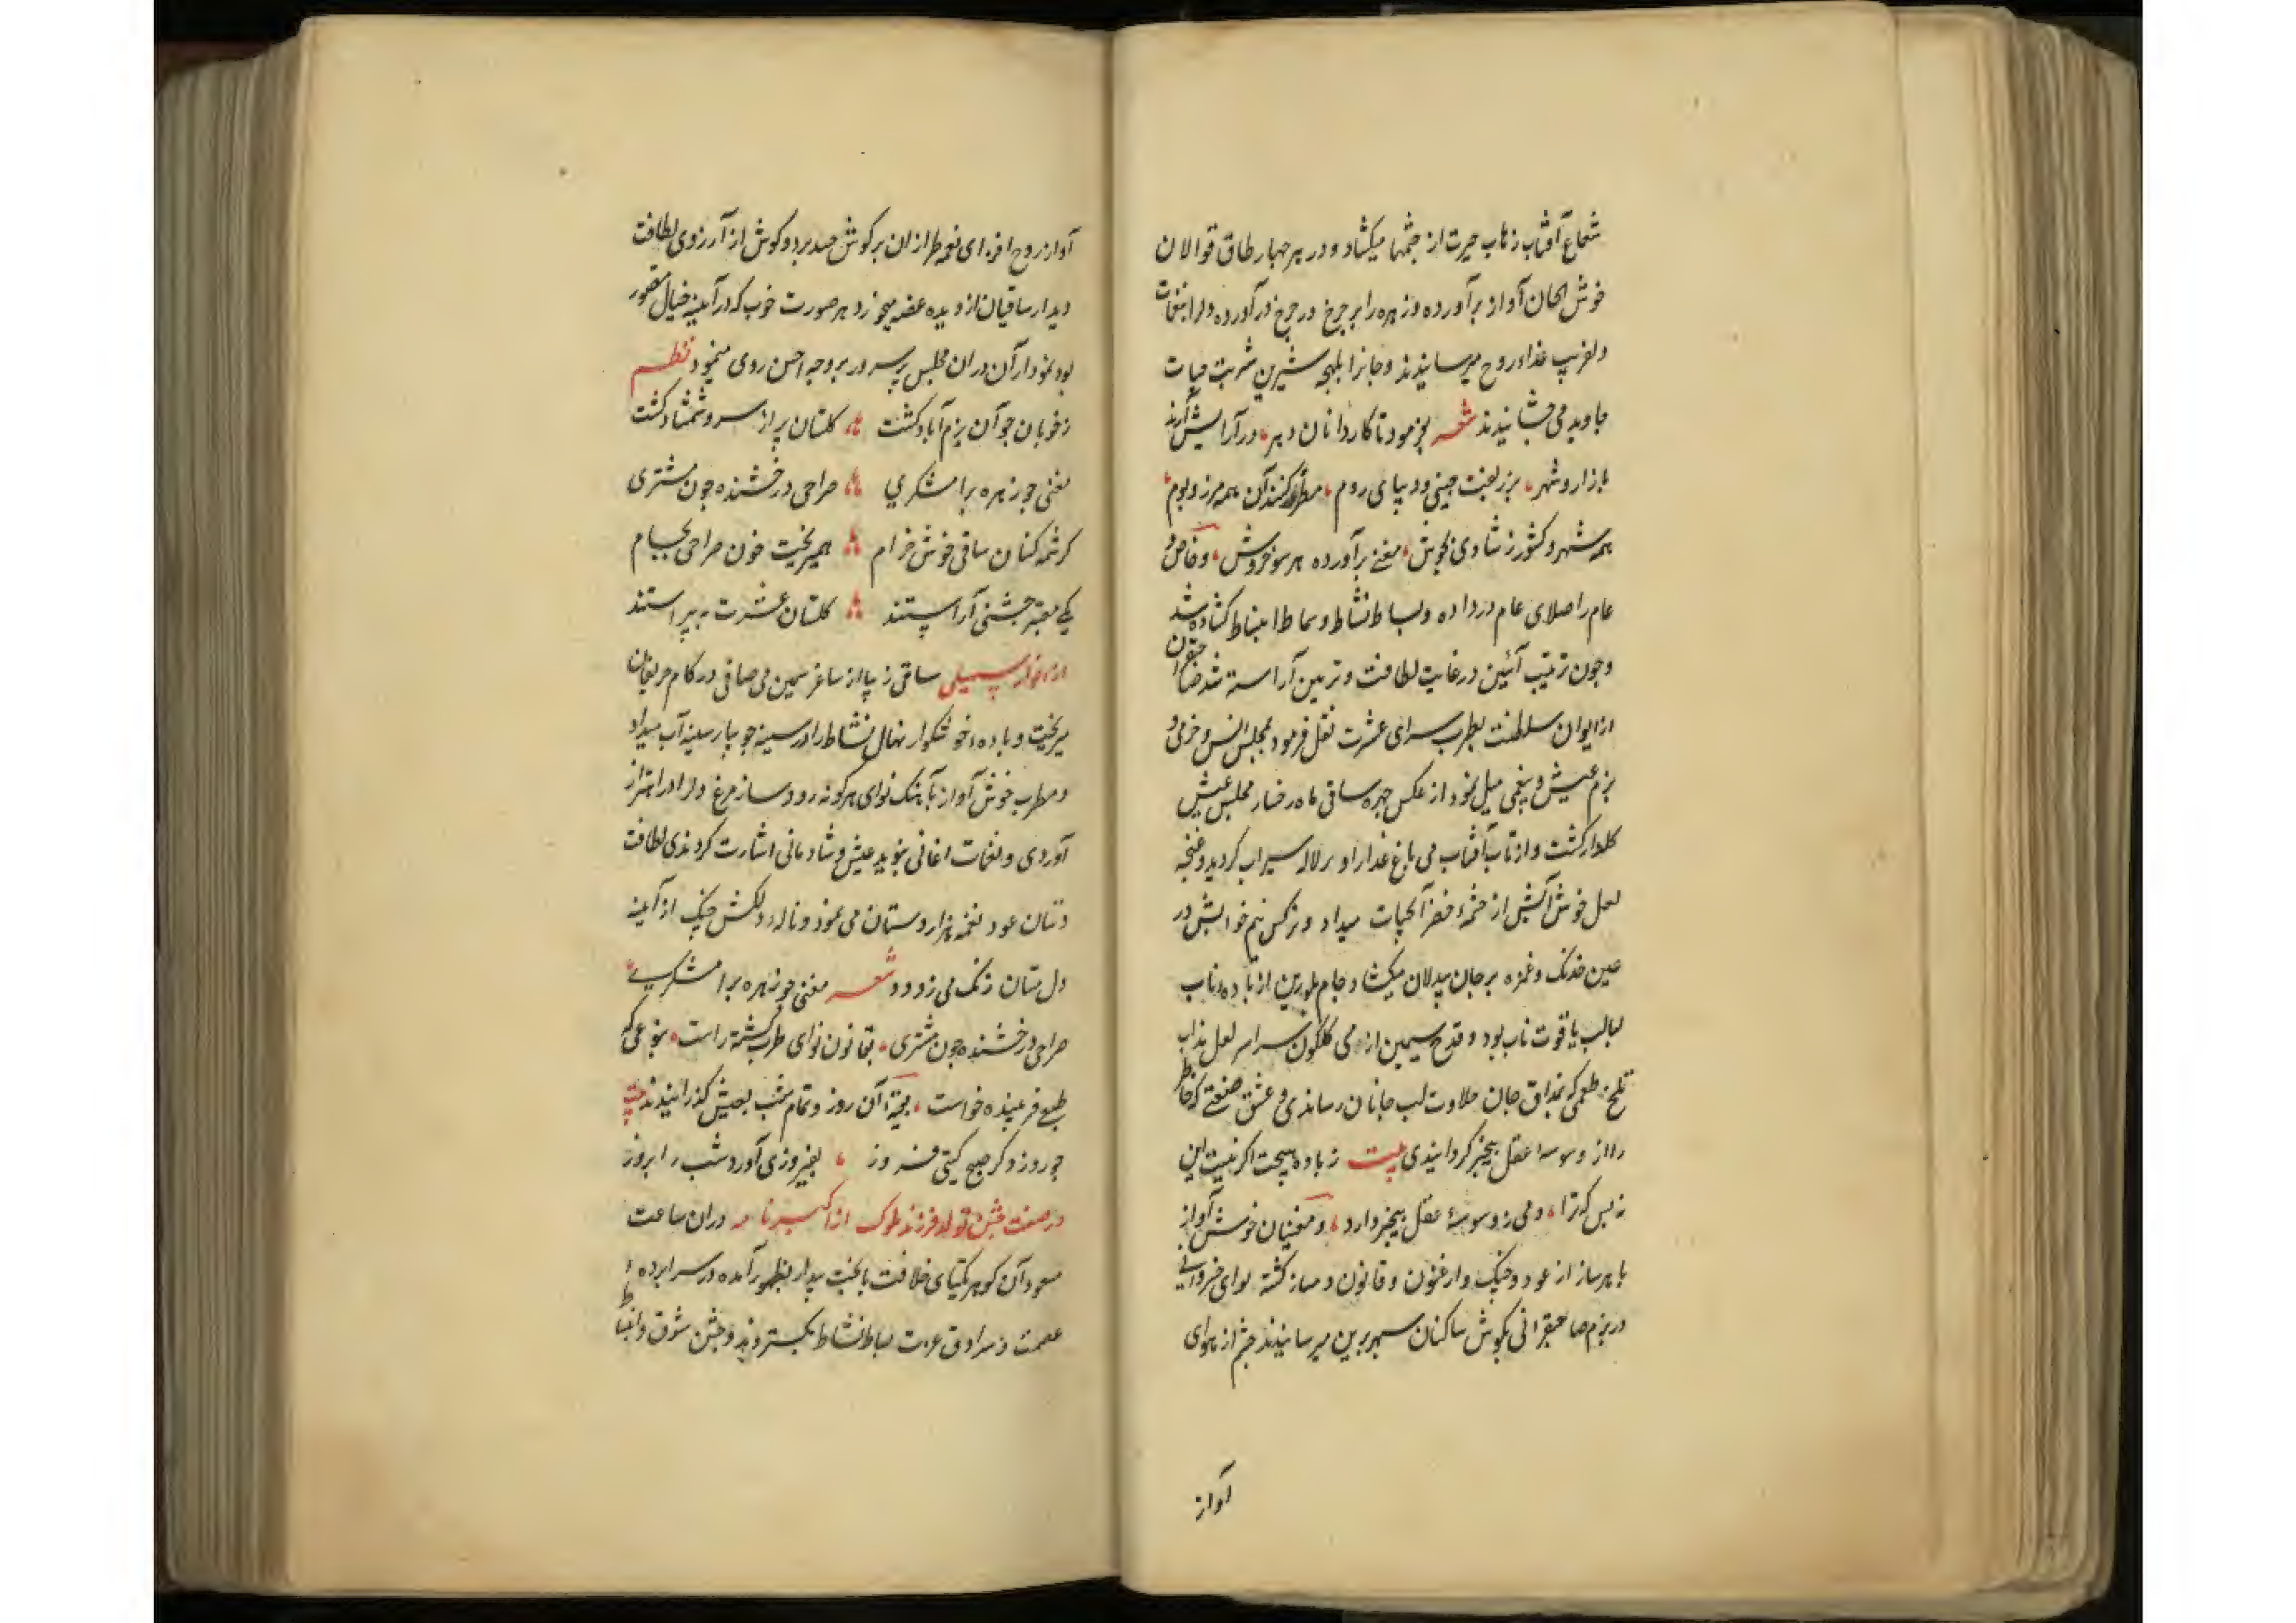 شعاع آفتاب نقاب حیرت از چشمها میکشاد و در هر چهار طاق قوالان
خوش الحان آواز برآورده و زهره را بر چرخ در چرخ درآورده و لرا بنغمات
دلفریب غذاء روح میرسانیدند و جانرا بلهجه شیرین شربت حیات
جاوید می چشانیدند شعر بفرمود تا کاردانان دهر در آرایش آرند
بازار و شهر بزربفت چینی و دیبای روم مطرز کنند آن همه مرز و بوم
همه شهر و کشور ز شادی بجوش مغنی برآورده هر سو خروش و خاص و
عام را صلای عام در داده و بساط نشاط و سماط انبساط کشاده شد
و چون ترتیب آئین در غایت لطافت و تزیین آراسته شد صاحبقران
از ایوان سلطنت بطرب سرای عشرت نقل فرمود بمجلس انس و خرمی و
بزم عیش و بیغمی میل نمود از عکس چهره ساقی ماه رخسار مجلس عیش
گلزار کشت و از تاب آفتاب می باغ عذار او بر لاله سیراب کردید و غنچه
لعل خوش آتش از چشمه خضر آبحیات میداد و نرکس نیم خوابش در
عین خدنک و غمزه بر جان بیدلان میکشاد و جام بلورین از باده ناب
لبالب یاقوت ناب بود و قدح سیمین از می کلکون سراسر لعل مذاب
تلخ طعمی که بمذاق جان حلاوت لب جانان رساندی و عشق صفتی که خاطر
را از وسوسه عقل بیخبر کردانیدی بیت ز باده هیچت اکر نیست این
نه بس که ترا دمی ز وسوسهٔ عقل بیخبر دارد و مغنیان خوش آواز
با هر ساز از عود و چنک و ارغنون و قانون دمساز کشته نوای خسروانی
در بزم صاحبقرانی بکوش ساکنان سپهر برین میرسانیدند چشم از هوای
آواز
آواز روح افزای نغمه طرازان بر کوش حسد برد و کوش از آرزوی لطافت
دیدار ساقیان از دیده غصه میخورد و هر صورت خوب که در آینه خیال متصور
بود نمودار آن در ان مجلس پر سرور بر وجه احسن روی مینمود نظم
ز خوبان چو آن بزم آباد کشت کلستان پر از سرو و شمشاد کشت
مغنی چو زهره برامشکری صراحی درخشنده چون مشتری
کرشمه کنان ساقی خوش خرام همیریخت خون صراحی بجام
یکی معتبر جشنی آراستند کلستان عشرت بپیراستند
از انوار سهیلی ساقی زیبا از ساغر سیمین می صافی در کام حریفان
میریخت و باده خوشکوار نهال نشاط را در سینه جویبار سینه آب میداد
و مطرب خوش آواز بآهنک نوای هر کونه رود ساز مرغ دل را در اهتزاز
آوردی و نغمات اغانی بنوید عیش و شادمانی اشارت کردندی لطافت
دستان عود نغمه هزار دستان می نمود و ناله دلکش چنک از آینه
دل مستان زنک می زدود شعر مغنی چو زهره برامشکری
صراحی درخشنده چون مشتری بقانون نوای طرب کشته راست بنوعی که
طبع فریبنده خواست بقیة آن روز و تمام شب بعیش کذرانیدند بیت
چو روز دکر صبح کیتی فروز بفیروزی آورد شب را بروز
در صفت جشن تولد فرزند ملوک از اکبرنامه دران ساعت
مسعود آن کوهر یکتای خلافت با بخت بیدار بظهور آمده در سراپرده
عصمت و سرادق عزت بساط نشاط بکستردند و جشن شوق و انبساط